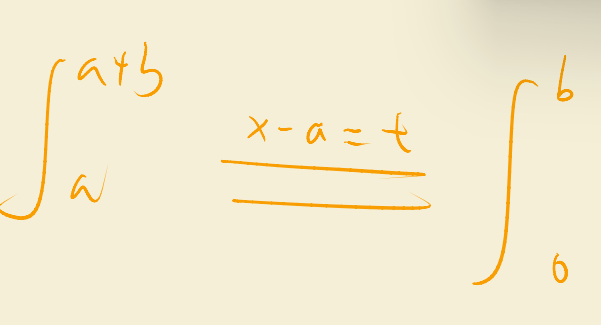 ∫_a^{a+b} \xlongequal{x-a=t} ∫_0^b